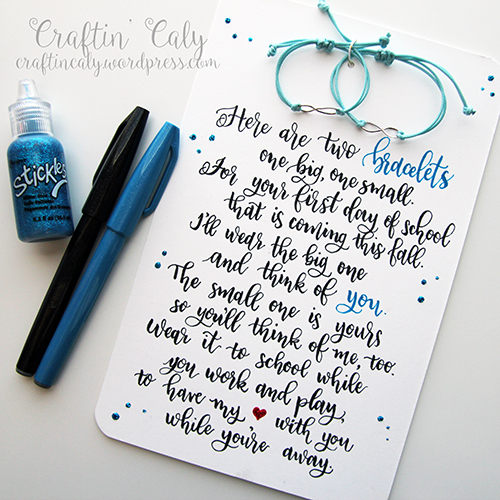 Craftin' Caly
craftincaly.wordpress.com
Stickles
Here are two bracelets
one big, one small.
For your first day of school
that is coming this fall.
I'll wear the big one
and think of you.
The small one is yours
so you'll think of me, too.
Wear it to school while
you work and play,
to have my ❤ with you
while you're away.